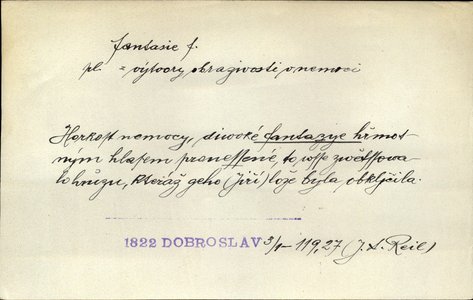 fantasie f.
pl. = výtvory obrazivosti v nemoci
Horkost nemocy, diwoké fantazye hřmot-
ným hlasem pronessené, to wsse počtssowa-
lo hrůzu, kteráž geho (Jiří) lože byla obkljčila.
1822 DOBROSLAV 3/1 - 119,27 (J. S. Reil)